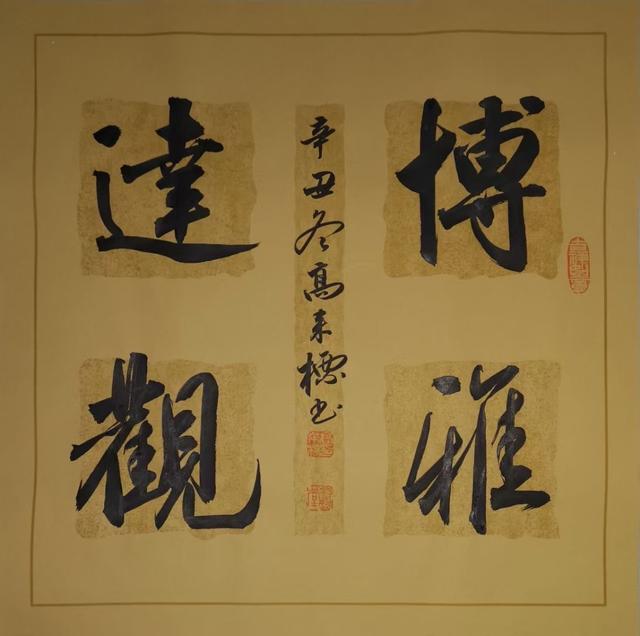 博雅
達觀
辛丑冬高来標书